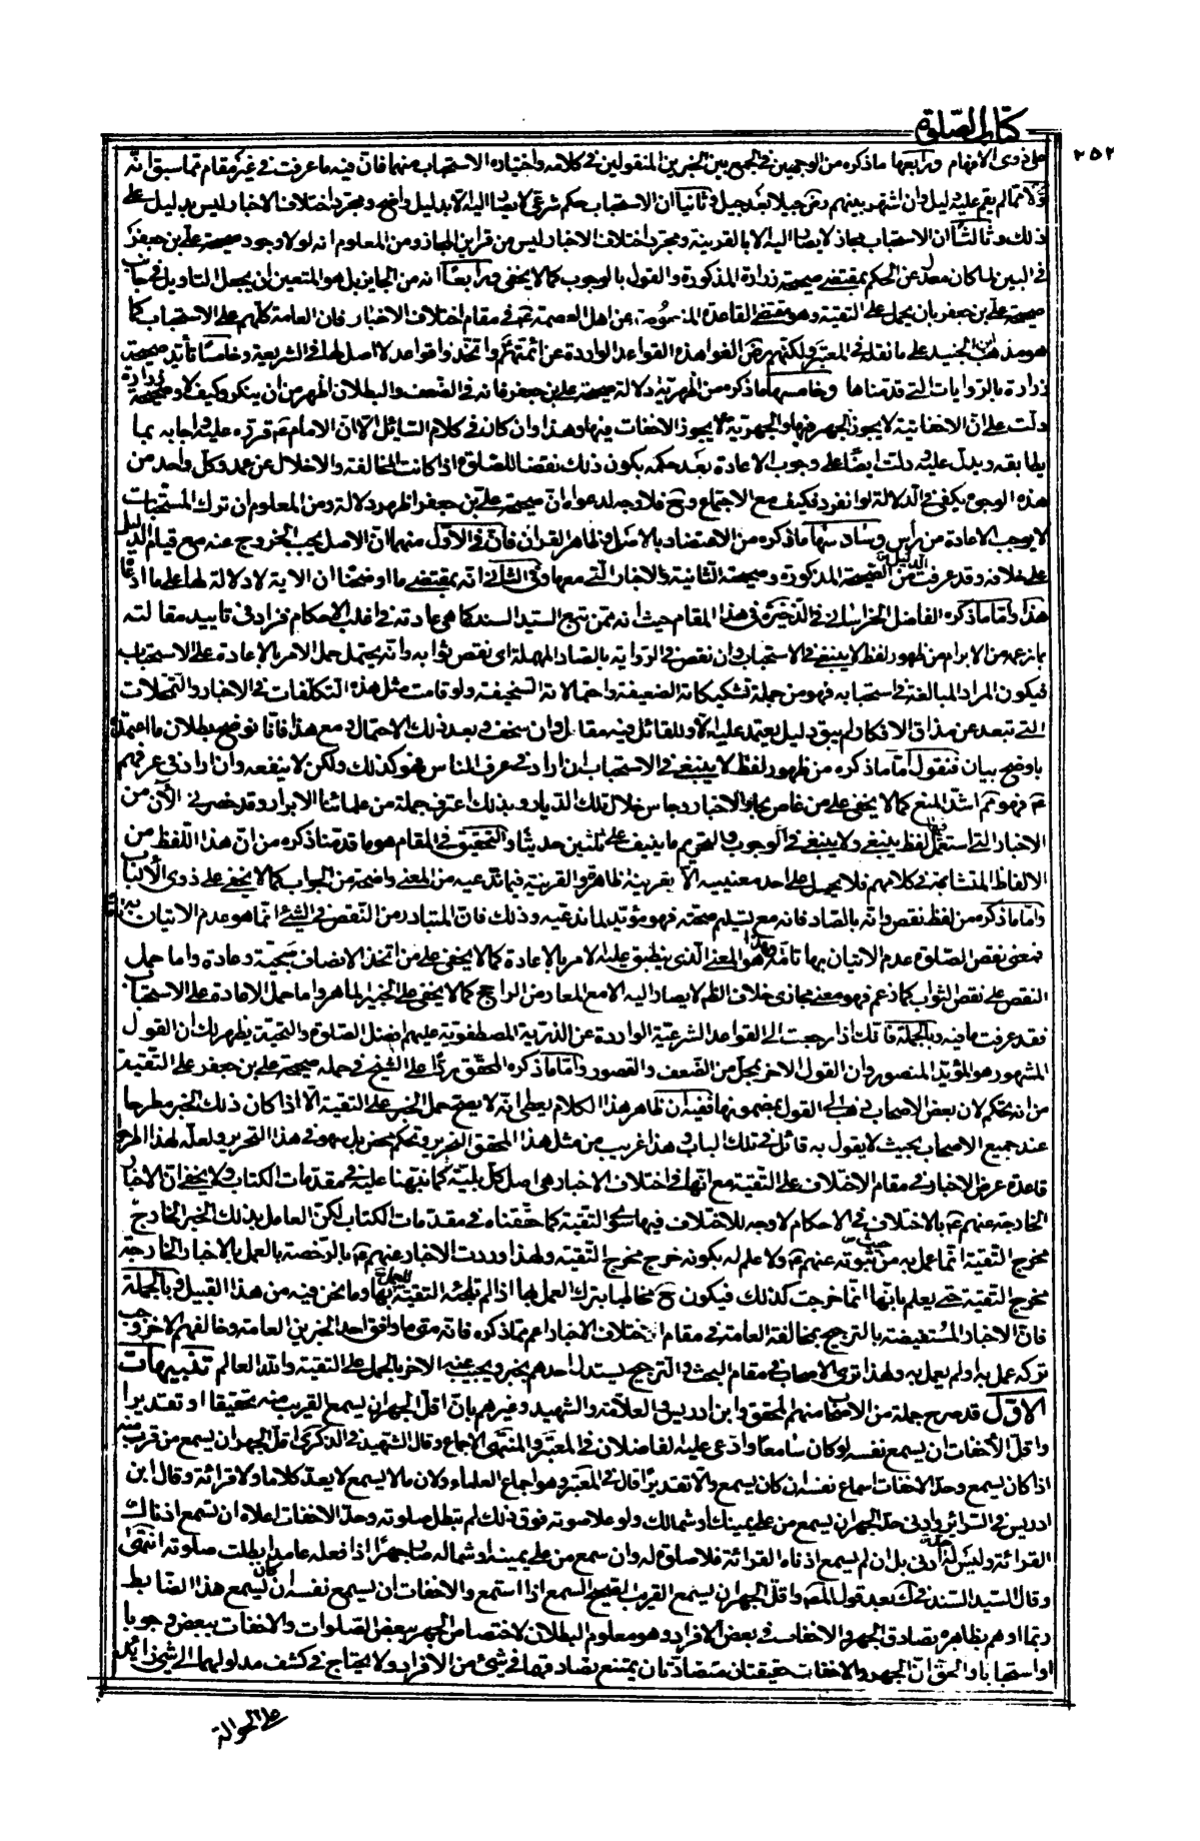 كتاب الصلوة
٢٥٢
على ذوى الافهام ورابعها ماذكره من الوجهين فى الجمع بين الخبرين المنقولين فى كلامه واختياره الاستحباب منهما فان فيه ما عرفت فى غير مقام مما سبق انه
اولا مما لم يقم عليه دليل وان اشتهر بينهم وتمسك جيلا بعد جيل وثانيا ان الاستحباب حكم شرعى لا يصار اليه الا بدليل واضح ومجرد اختلاف الاخبار ليس بدليل على
ذلك وثالثا ان الاستحباب مجاز لا يصار اليه الا بالقرينة ومجرد اختلاف الاخبار ليس من قراين المجاز ومن المعلوم انه لولا وجود صحيحة على بن جعفر
فى البين لما كان معدل عن الحكم بمقتضى صحيحة زرارة المذكورة والقول بالوجوب كما لا يخفى ورابعا انه من الجايز بل هو المتعين ان يجعل التاويل فى جانب
صحيحة على بن جعفر بان يحمل على التقية وهو مقتضى القاعدة المنصوصة عن اهل العصمة ع فى مقام اختلاف الاخبار فان العامة كلهم على الاستحباب كما
هو مذهب ابن الجنيد على ما نقله فى المعتبر ولكنهم رض الغوا هذه القواعد الواردة عن ائمتهم ع واتخذوا قواعد لا اصل لها فى الشريعة وخامسا تأيد صحيحة
زرارة بالروايات التى قدمناها وخامسها ماذكره من اظهرية دلالة صحيحة على بن جعفر فانه فى الضعف والبطلان اظهر من ان ينكر وكيف لا وصحيحة زرارة
دلت على ان الاخفاتية لا يجوز الجهر فيها والجهرية لا يجوز الاخفات فيها وهذا وان كان فى كلام السائل الا ان الامام ع قرره عليه واجابه بما
يطابقه ويدل عليه ودلت ايضا على وجوب الاعادة بعد حكمه بكون ذلك نقضا للصلوة اذا كانت المخالفة والاخلال عن عمد وكل واحد من
هذه الوجوه يكفى فى الدلالة لو انفرد فكيف مع الاجتماع وح فلا وجه لدعواه ان صحيحة على بن جعفر اظهر دلالة ومن المعلوم ان ترك المستحبات
لا يوجب الاعادة من رأس وسادسها ماذكره من الاعتضاد بالاصل وظاهر القران فان فى الاول منهما ان الاصل يجب الخروج عنه مع قيام الدليل
على خلافه وقد عرفت الدليل من الصحيحة المذكورة وصحيحته الثانية والاخبار التى معهما وفى الثانى انه بمقتضى ما اوضحنا ان الاية لا دلالة لها على ما ادعاه
هذا واما ماذكره الفاضل الخراسانى فى الذخيرة فى هذا المقام حيث انه ممن تبع السيد السند كما هى عادته فى اغلب الاحكام فزاد فى تاييد مقالته
بما زعمه من الابرام من ظهور لفظ لا ينبغى فى الاستحباب وان نقص فى الرواية بالصاد المهملة اى نقص ثوابه وانه يحتمل حمل الامر بالاعادة على الاستحباب
فيكون المراد المبالغة فى استحبابه فهو من جملة تشكيكاته الضعيفة واحتمالاته السخيفة ولو قامت مثل هذه التكلفات فى الاخبار والتمحلات
التى تبعد عن مذاق الافكار لم يبق دليل يعتمد عليه الا وللقائل فيه مقال وان سخف وبعد ذلك الاحتمال ومع هذا فانا نوضح بطلان ما اعتمده
باوضح بيان فنقول اما ماذكره من ظهور لفظ لا ينبغى فى الاستحباب ان اراد فى عرف الناس فهو كذلك ولكن لا ينفعه وان اراد فى عرفهم
ع فهو ثم اشد المنع كما لا يخفى على من غاص بحار الاخبار وجاس خلال تلك الديار وبذلك اعترف جملة من علمائنا الابرار وقد حضرنى الآن من
الاخبار التى استعمل فيها لفظ ينبغى ولا ينبغى فى الوجوب والتحريم ما ينيف على ثلثين حديثا والتحقيق فى المقام هو ما قدمنا ذكره من ان هذا اللفظ من
الالفاظ المتشابهة فى كلامهم فلا يحمل على احد معنييه الا بقرينة ظاهرة والقرينة فيما ندعيه من المعنى واضحة من الجواب كما لا يخفى على ذوى الألباب
واما ماذكره من لفظ نقص وانه بالصاد فانه مع تسليم صحته فهو مؤيد لما ندعيه وذلك فان المتبادر من النقص فى الشئ انما هو عدم الاتيان به تاما
فمعنى نقص الصلوة عدم الاتيان بها تامة وهذا هو المعنى الذى ينطبق عليه الامر بالاعادة كما لا يخفى على من اتخذ الانصاف سجية وعادة واما حمل
النقص على نقص الثواب كما زعم فهو معنى مجازى خلاف الظاهر لا يصار اليه الا مع المعارض الراجح كما لا يخفى على الخبير الماهر واما حمل الاعادة على الاستحباب
فقد عرفت ما فيه وبالجملة فانك اذا رجعت الى القواعد الشرعية الواردة عن الذرية المصطفوية عليهم افضل الصلوة والتحية يظهر لك ان القول
المشهور هو المؤيد المنصور وان القول الاخر بمحل من الضعف والقصور واما ماذكره المحقق ردا على الشيخ فى حمله صحيحة على بن جعفر على التقية
من انه تحكم لان بعض الاصحاب ذهب الى القول بمضمونها ففيه ان ظاهر هذا الكلام يعطى انه لا يصح حمل الخبر على التقية الا اذا كان ذلك الخبر مطرحا
عند جميع الاصحاب بحيث لا يقول به قائل فى تلك الباب وهذا غريب من مثل هذا المحقق النحرير وتحكم محض بل سهو فى هذا التحرير ولعله لهذا اطرحوا
قاعدة عرض الاخبار فى مقام الاختلاف على التقية مع انها فى اختلاف الاخبار هى اصل كل بلية كما نبهنا عليه فى مقدمات الكتاب ولا يخفى ان الاخبار
الخارجة عنهم ع بالاختلاف فى الاحكام لا وجه للاختلاف فيها سوى التقية كما حققناه فى مقدمات الكتاب لكن العامل بذلك الخبر الخارج
مخرج التقية انما عمل به من حيث ثبوته عنهم ع ولا علم له بكونه خرج مخرج التقية ولهذا وردت الاخبار عنهم ع بالرخصة بالعمل بالاخبار الخارجة
مخرج التقية حتى يعلم بانها انما خرجت كذلك فيكون ح مخاطبا بترك العمل بها اذا لم تلجئه التقية للعمل بها وما نحن فيه من هذا القبيل وبالجملة
فان الاخبار المستفيضة بالترجيح بمخالفة العامة فى مقام اختلاف الاخبار اعم مما ذكره فانه متى ما وافق احد الخبرين العامة وخالفهم الاخر وجب
تركه عمل به او لم يعمل به ولهذا ترى الاصحاب فى مقام البحث والترجيح يستدل احدهم بخبر ويجيب عنه الاخر بالحمل على التقية والله العالم تنبيهات
الاول قد صرح جملة من الاصحاب منهم المحقق وابن ادريس والعلامة والشهيد وغيرهم بان اقل الجهر ان يسمع القريب منه تحقيقا او تقديرا
واقل الاخفات ان يسمع نفسه لو كان سامعا وادعى عليه الفاضلان فى المعتبر والمنتهى الاجماع وقال الشهيد فى الذكرى اقل الجهر ان يسمع من قرب منه
اذا كان يسمع وحد الاخفات اسماع نفسه ان كان يسمع والا تقديرا قال فى المعتبر وهو اجماع العلماء ولان ما لا يسمع لا يعد كلاما ولا قرائة وقال ابن
ادريس فى السرائر وادنى حد الجهر ان يسمع من على يمينك او شمالك ولو علا صوته فوق ذلك لم تبطل صلوته وحد الاخفات اعلاه ان تسمع اذناك
القرائة وليس له حد ادنى بل ان لم يسمع اذناه القرائة فلا صلوة له وان سمع من على يمينه او شماله صار جهرا اذا فعله عامدا بطلت صلوته انتهى
وقال السيد السند فى ك بعد قول المص واقل الجهر ان يسمع القريب الصحيح السمع اذا استمع والاخفات ان يسمع نفسه ان كان يسمع هذا الضابط
ربما اوهم بظاهره تصادق الجهر والاخفات فى بعض الافراد وهو معلوم البطلان لاختصاص الجهر ببعض الصلوات والاخفات ببعض وجوبا
او استحبابا والحق ان الجهر والاخفات حقيقتان متضادتان يمتنع تصادقهما فى شئ من الافراد ولا يحتاج فى كشف مدلولهما الى شئ زائد
على الحوالة